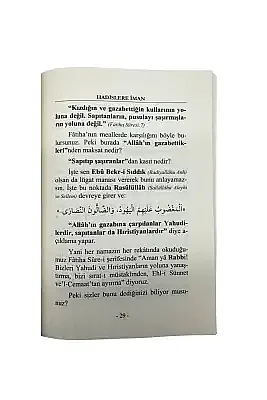 HADİSLERE İMAN
"Kızdığın ve gazabettiğin kullarının yo-
luna değil. Sapıtanların, pusulayı şaşırmışla-
rın yoluna değil." (Fâtiha Sûresi: 7)
Fâtiha'nın meallerde karşılığını böyle bu-
lursunuz. Peki burada "Allâh'ın gazabettik-
leri"nden maksat nedir?
"Sapıtıp şaşıranlar"dan kasıt nedir?
İşte sen Ebû Bekr-i Sıddık (Radıyallâhu Anh)
olsan da lügat manası vererek bunu anlayamaz-
sın. İşte bu noktada Rasûlüllâh (Sallallâhu Aleyhi
ve Sellem) devreye girer ve:
«اَلْمَغْضُوبُ عَلَيْهِمُ الْيَهُودُ، وَالضَّالُّونَ النَّصَارَى.»
"Allâh'ın gazabına çarpılanlar Yahudi-
lerdir, sapıtanlar da Hıristiyanlardır" diye a-
çıklama yapar.
Yani her namazın her rekâtında okuduğu-
muz Fâtiha Sûre-i şerifesinde "Aman yâ Rabbi!
Bizleri Yahudi ve Hıristiyanların yoluna yanaş-
tırma, bizi sırat-ı müstakîmden, Ehl-i Sünnet
ve'l-Cemaat'tan ayırma" diyoruz.
Peki sizler bunu dediğinizi biliyor musu-
nuz?
- 29 -